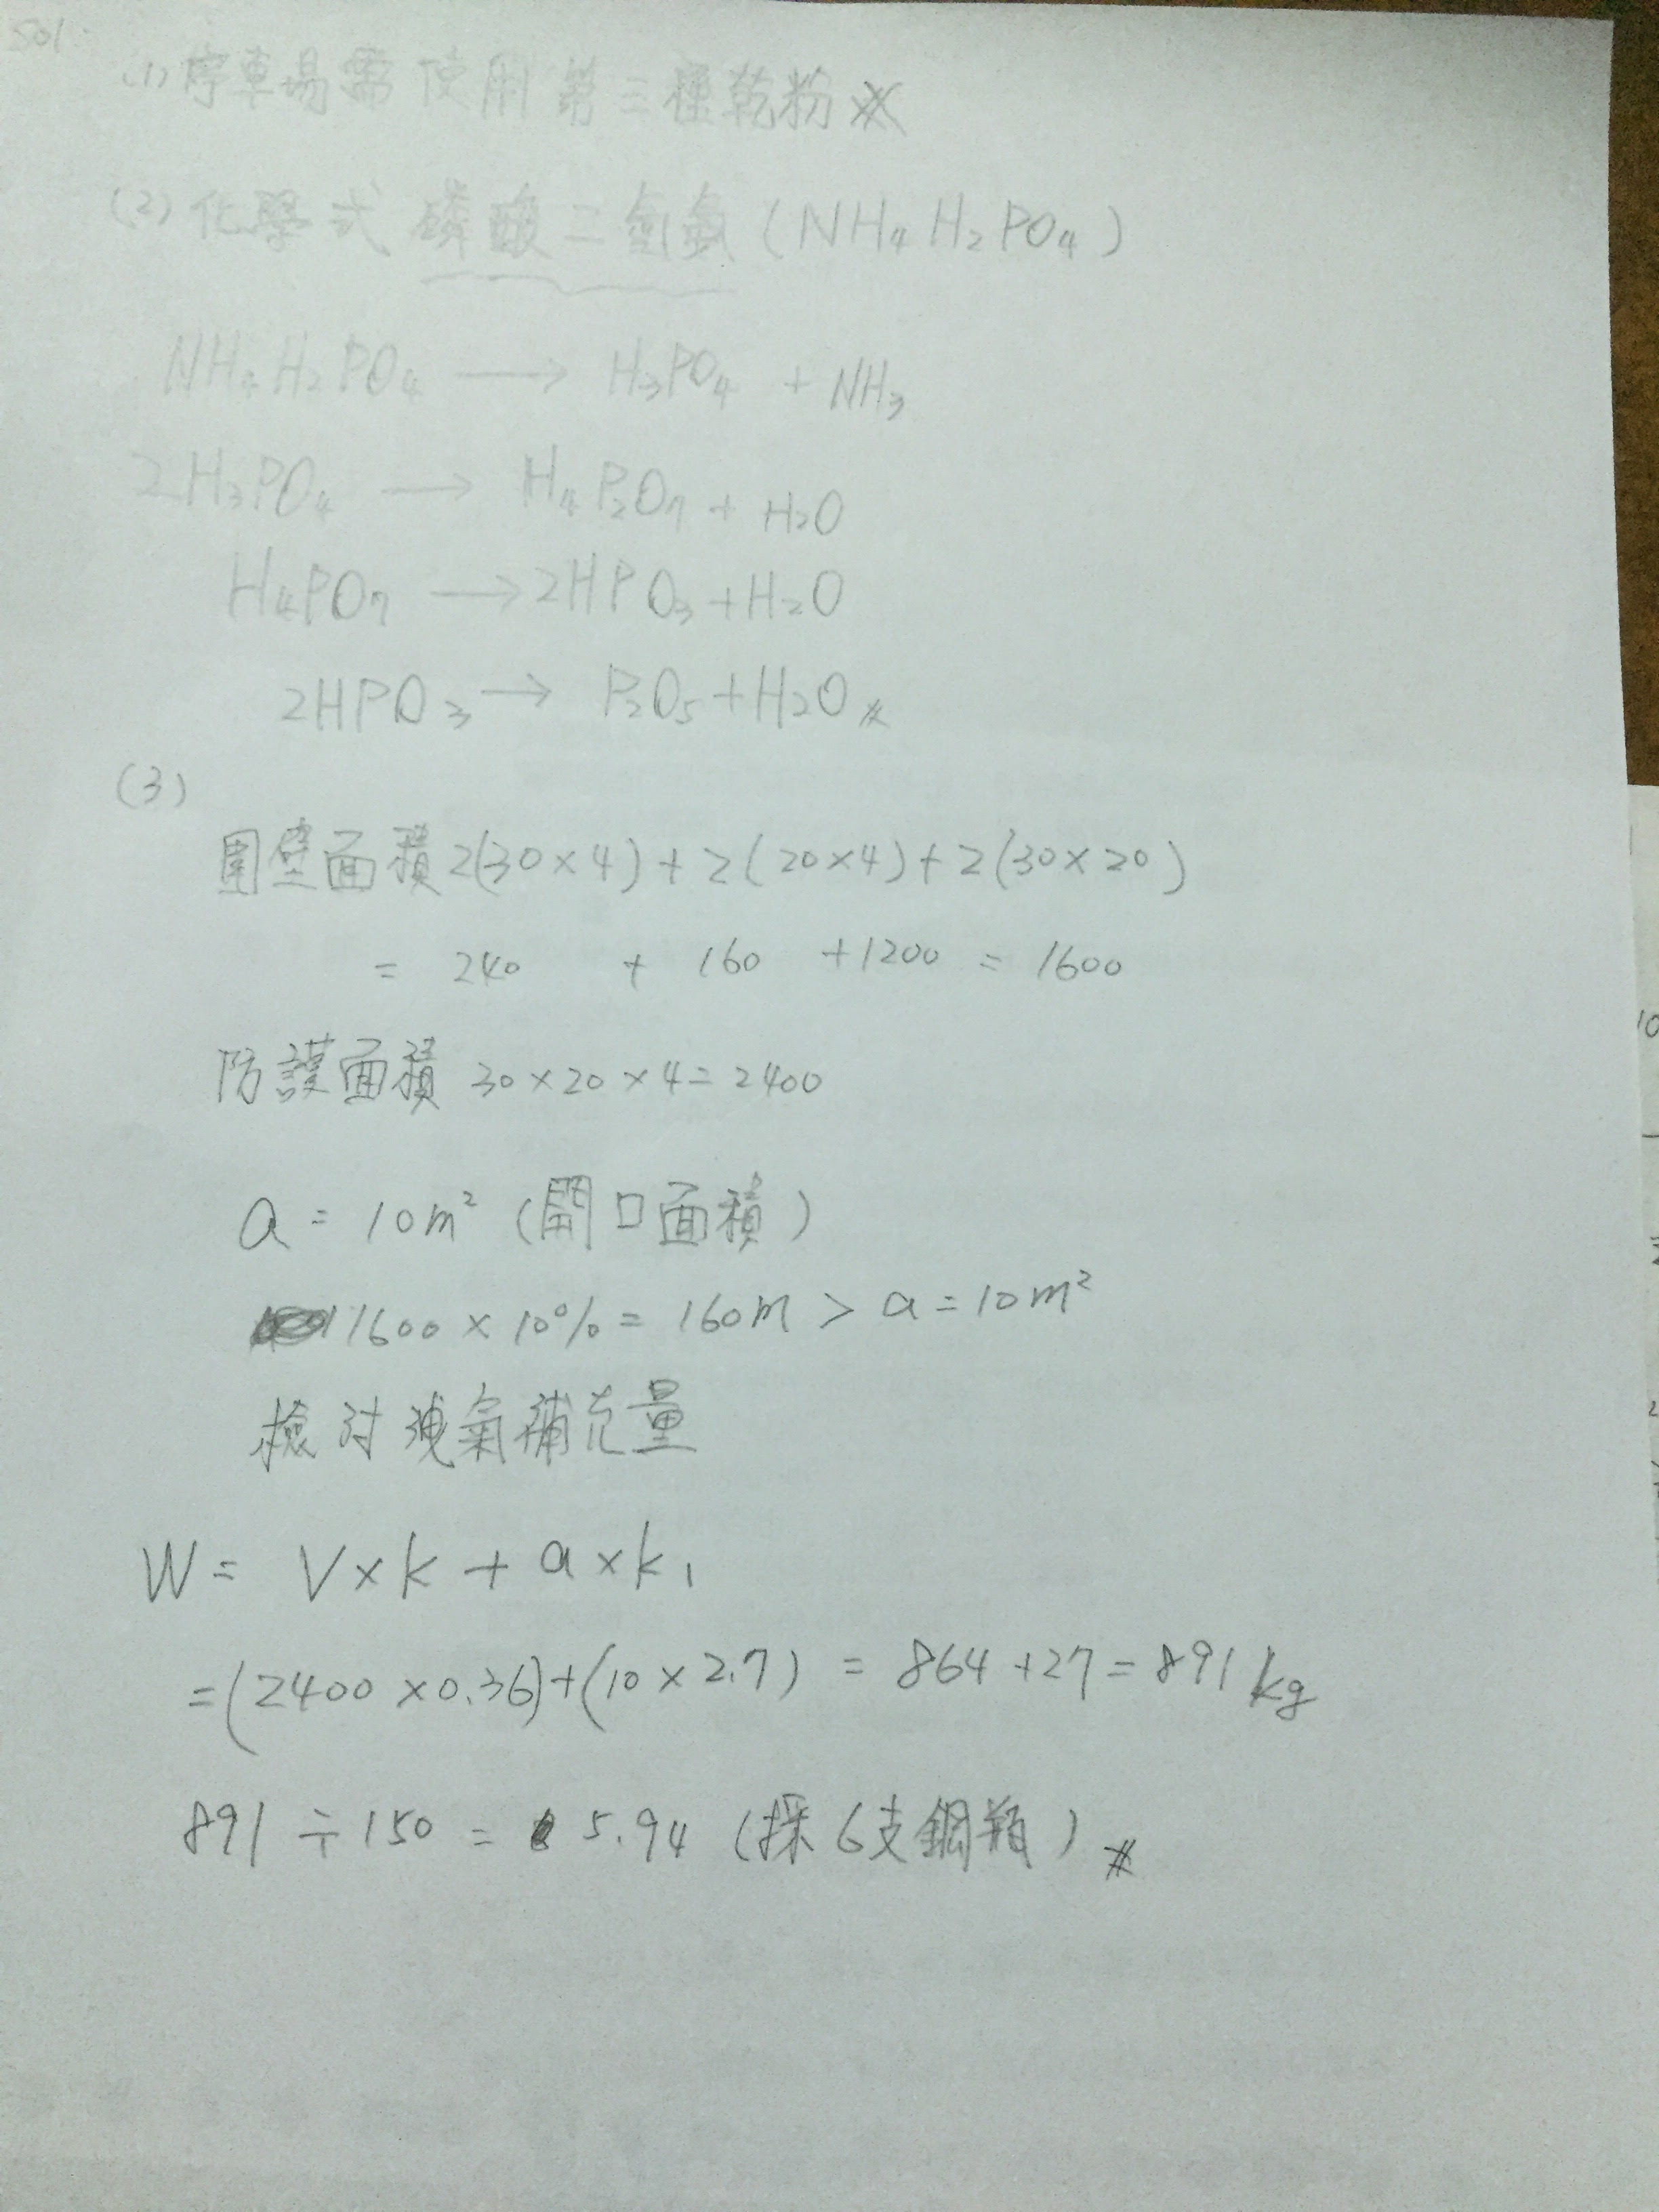 sol:
(1) 停車場需使用第三種乾粉
(2) 化學式 磷酸二氫氨 (NH₄H₂PO₄)
NH₄H₂PO₄ → H₃PO₄ + NH₃
2H₃PO₄ → H₄P₂O₇ + H₂O
H₄PO₇ → 2HPO₃ + H₂O
2HPO₃ → P₂O₅ + H₂O
(3)
圍壁面積 2(30×4) + 2(20×4) + 2(30×20)
= 240 + 160 + 1200 = 1600
防護面積 30×20×4 = 2400
a = 10m² (開口面積)
1600 × 10% = 160m > a = 10m²
檢討洩氣補充量
W = V×k + a×k₁
= (2400 × 0.36) + (10 × 2.7) = 864 + 27 = 891 kg
891 ÷ 150 = 5.94 (採6支鋼瓶)
10